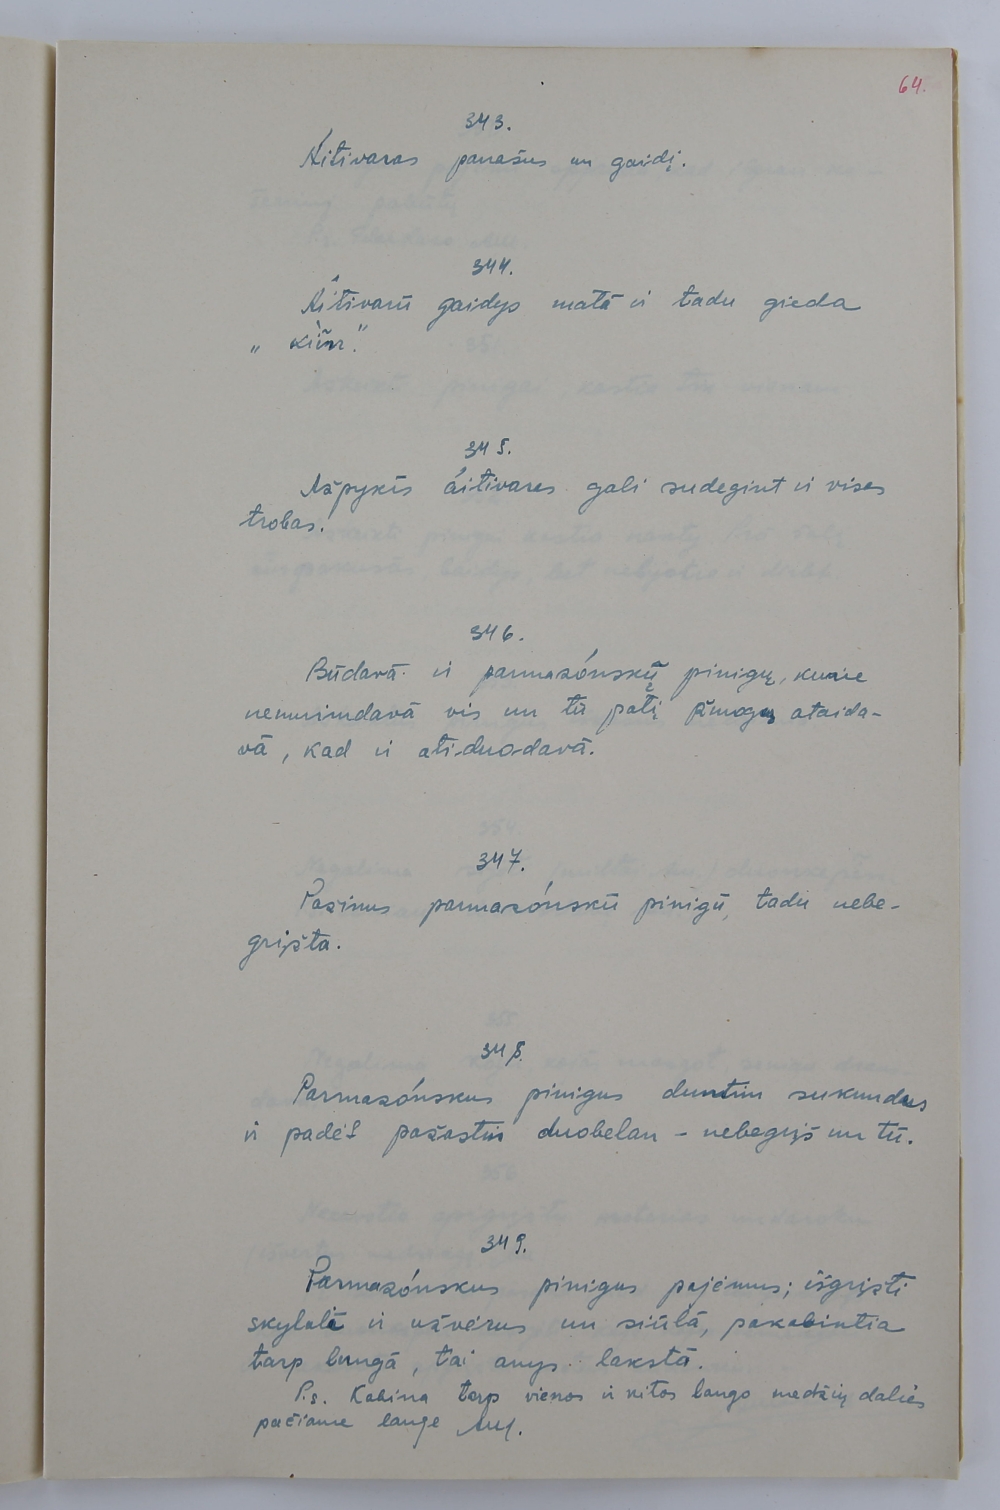 64.
343.
Áitivaras panašus un gaidį.
344.
Áitivarū gaidys matā ir tadu gieda
„ kìūr."
345.
Ažpykis áitivaras gali sudegint ir visas
trobas.
346.
Būdavā ir parmazónskų̄ pinigų, kurie
nenurimdavā vis un tū patį žmogų ataida-
vā, kad ir ati-duo-davā.
347.
Pažinus parmazónskū pinigū, tadu nebe-
grįžta.
348.
Parmazónskus pinigus
ir padėt pažastin duobelan - nebegrįž un tū.
349.
Parmazónskus pinigus pajėmus; išgrįžti
skylutė ir užvėrus un siūlā, pakabintia
tarp lungā, tai anys lakstā.
P.s. Kabina tarp vienos ir kitos lango medžių dalies
pačiame lange